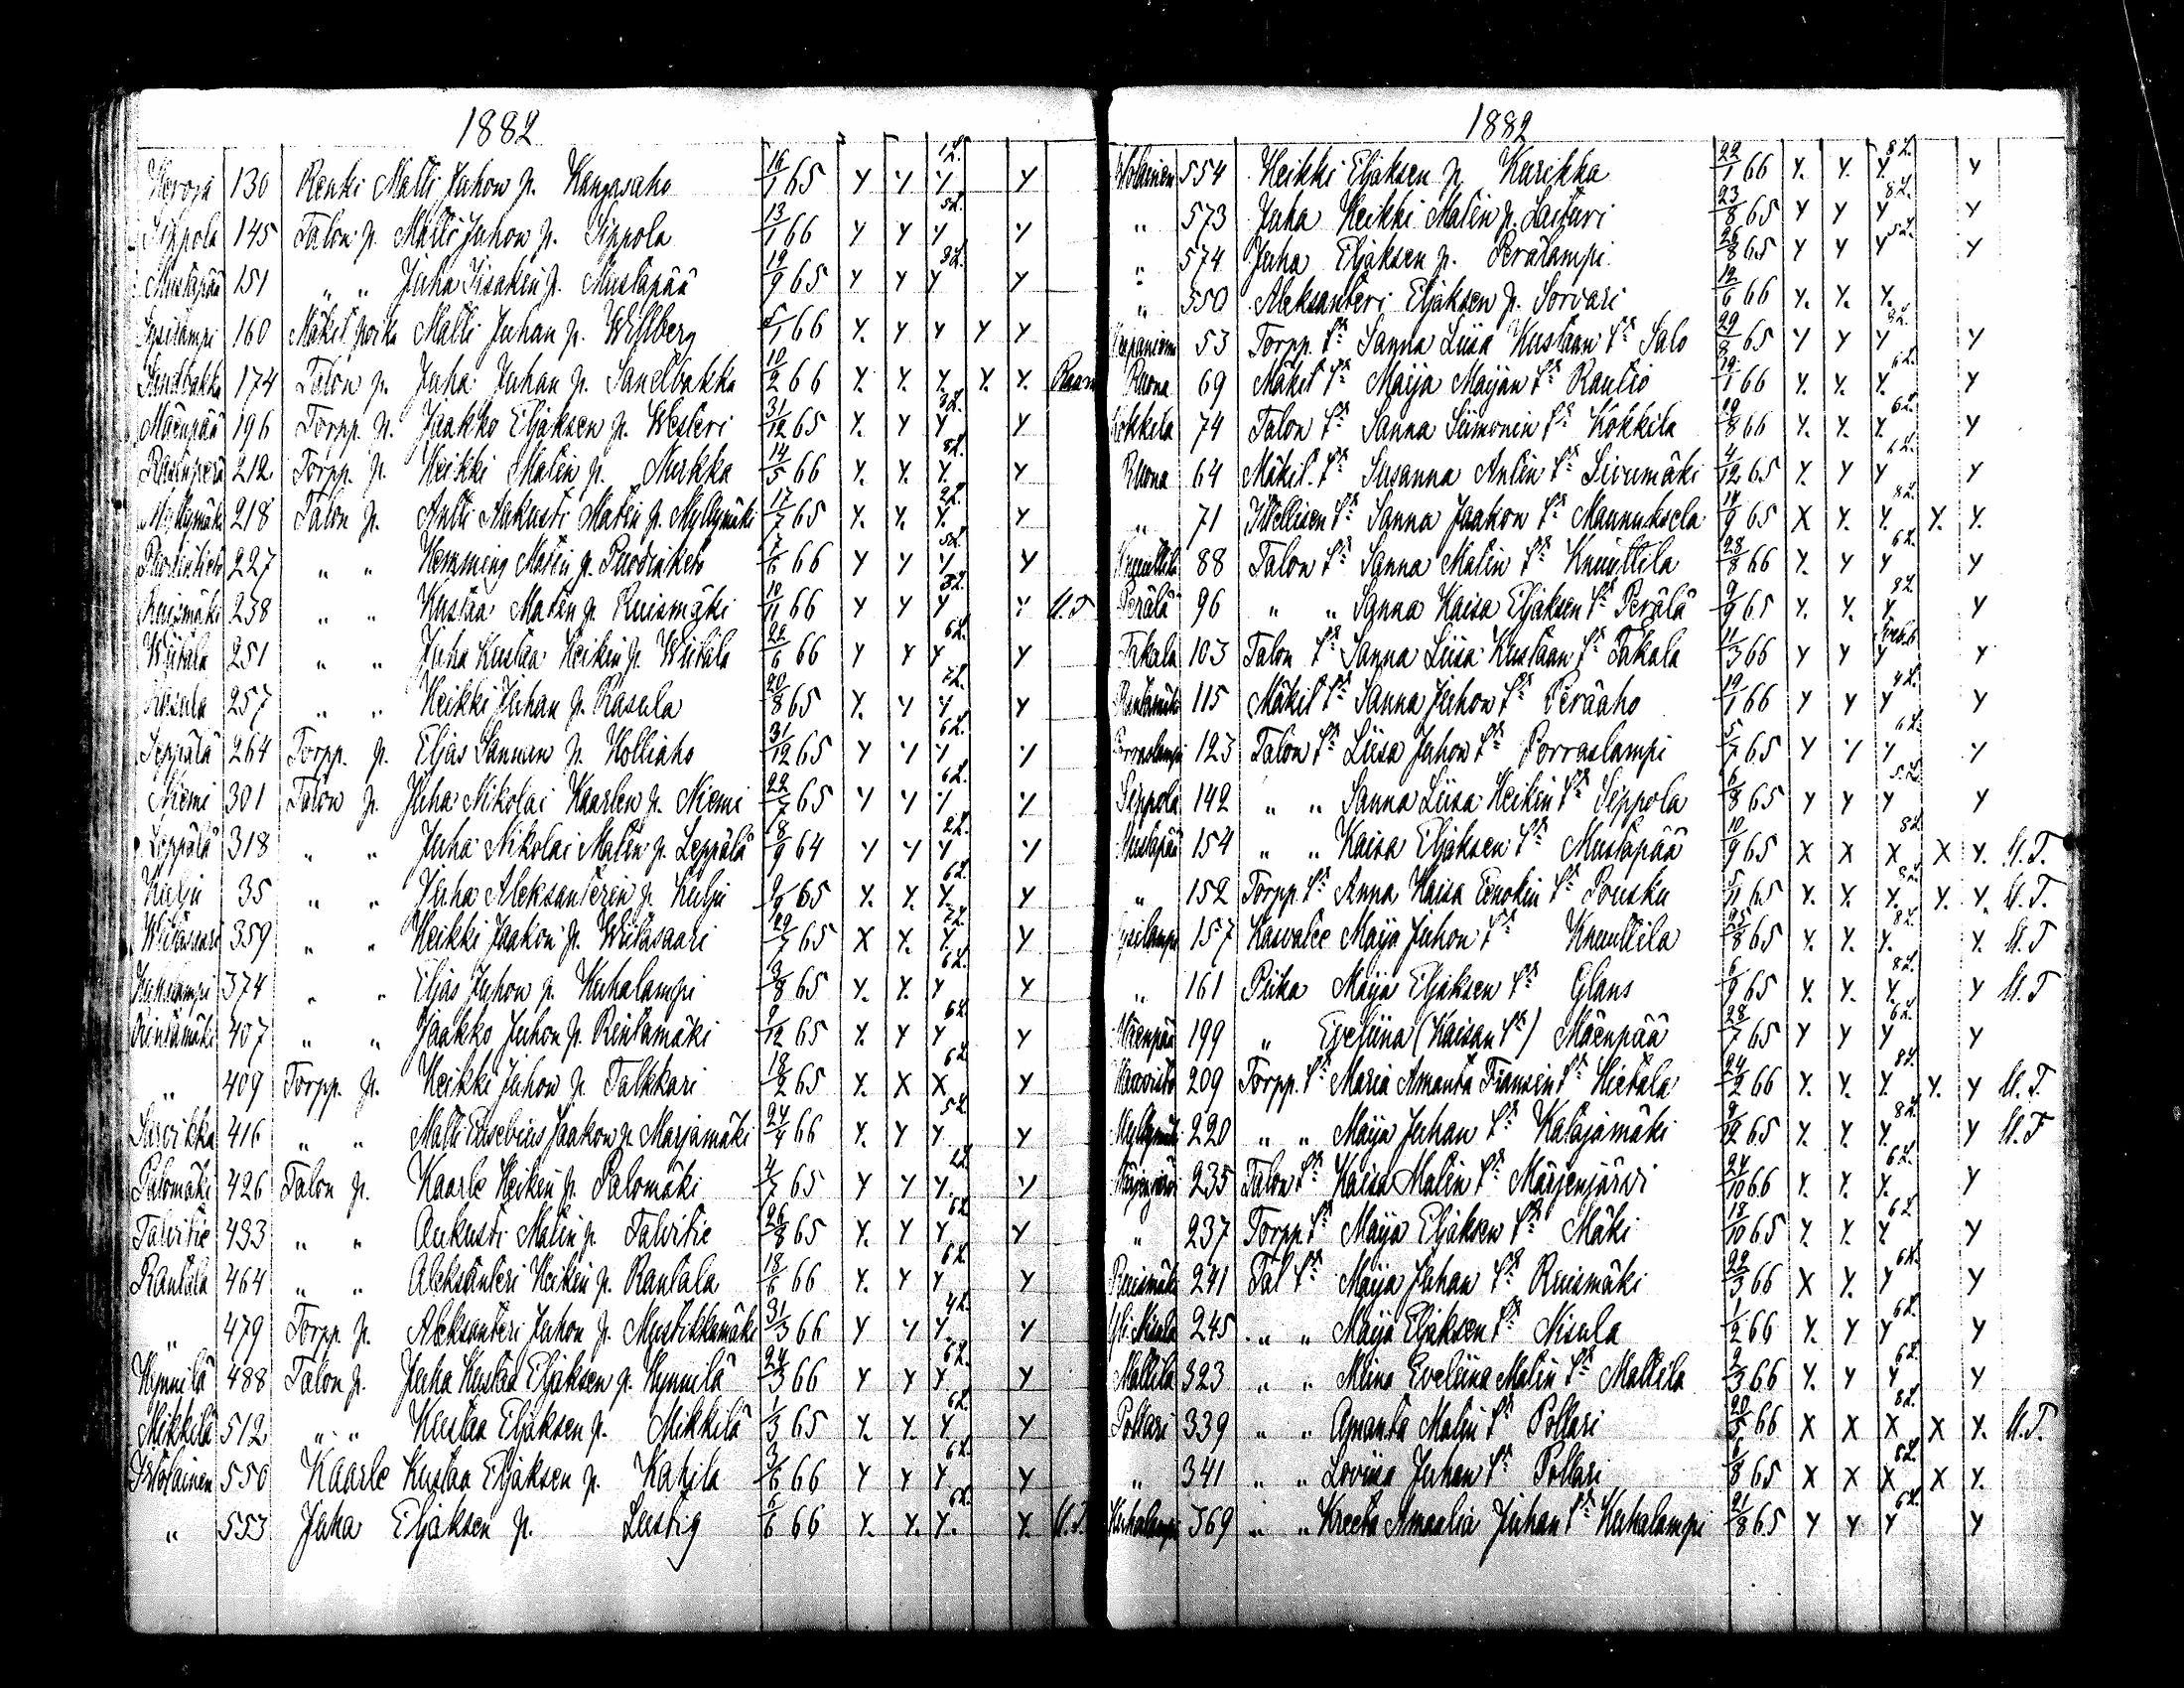 1882
130 Renki Matti Juhon p. Kangasaho 16/1 65 y y y 1L. y
Sippola 145 Talon p. Matti Juhon p. Sippola 13/1 66 y y y 5L. y
Mustapää 151 " " Juha Iisakin p. Mustapää 19/9 65 y y y 8L. y
160 Mäkit. poika Matti Juhan p. Wihlberg 5/1 66 y. y y y y
Sandbakka 174 Talon p. Juha Juhan p. Sandbakka 10/2 66 y. y. y. y. y.
Mäenpää 196 Torpp. p. Jaakko Eljaksen p. Westeri 31/12 65 y. y y y
212 Torpp. p. Heikki Matin p. Murkka 14/5 66 y. y. y. 8L. y
Myllymäki 218 Talon p. Antti Aukusti Matin p. Myllymäki 17/7 65 y. y. y. 2L. y
227 " " Hemming Matin p. 66 y y y 5L. y
Ruismäki 238 " " Kustaa Matin p. Ruismäki 10/11 66 y y y 8L. y U.T
Wiitala 251 " " Juha Kustaa Heikin p. Wiitala 66 y y y 6L. y
Rasula 257 " " Heikki Juhan p. Rasula 20/8 65 y. y y y
Seppälä 264 Torpp. p. Eljas Sannan p. Kolliaho 31/12 65 y y y 6L. y
Niemi 301 Talon p. Juha Nikolai Kaarlen p. Niemi 22/7 65 y y y 6L. y
Leppälä 318 " " Juha Nikolai Matin p. Leppälä 18/9 64 y y y 2L. y
Kulju 35 " " Juha Aleksanterin p. Kulju 65 y. y. y. 6L. y
Wiitasaari 359 " " Heikki Jaakon p. Wiitasaari 29/7 65 x y. y. y
374 " " Eljas Juhon p. Kuhalampi 65 y. y. y 6L. y
Rintamäki 407 " " Jaakko Juhon p. Rintamäki 9/12 65 y. y y 6L. y
" 409 Torpp. p. Heikki Juhon p. Talkkari 18/2 65 y. x x 6L y
Särvikka 416 " " Matti Eusebius Jaakon p. Marjamäki 24/4 66 y. y y 5L. y
Palomäki 426 Talon p. Kaarle Heikin p. Palomäki 4/7 65 y y y. 2L y
Talvitie 433 " " Aukusti Matin p. Talvitie 26/8 65 y. y y 6L y
Rantala 464 " " Aleksanteri Heikin p. Rantala 18/6 66 y. y y 6L. y
" 479 Torpp. p. Aleksanteri Juhon p. Mustikkamäki 31/3 66 y y y. 4L. y
Hynnilä 488 Talon p. Juha Kustaa Eljaksen p. Hynnilä 24/3 66 y y y. 6L. y
Mikkilä 512 " " Kustaa Eljaksen p. Mikkilä 1/3 65 y. y. y. 6L. y
550 Kaarle Kustaa Eljaksen p. Kahila 3/6 66 y y y. 6L. y
" 553 Juha Eljaksen p. Lustig 6/6 66 y. y. y. 6L. y. U.T.
1882
554 Heikki Eljaksen p. Kurikka 22/1 66 y. y. y. 8L. y
" 573 Juha Heikki Matin p. Laituri 23/8 65 y y y 8L. y
" 574 Juha Eljaksen p. Perälampi 26/8 65 y y y 5L. y
" 550 Aleksanteri Eljaksen p. Sorvari 12/6 66 y. y. y.
53 Torpp. tr. Sanna Liisa Kustaan tr. Salo 29/8 65 y y y 8L. y
Ruona 69 Mäkit tr. Maija Maijan tr. Rautio 19/1 66 y. y. y. 6L. y
Kökkilä 74 Talon tr. Sanna Siimonin tr. Kökkilä 19/8 66 y. y. y. 6L. y
Ruona 64 Mäkit. tr. Susanna Antin tr. Sivumäki 4/12 65 y. y y 6L. y
" 71 Itsellisen tr. Sanna Jaakon tr. Mannuksela 14/9 65 x y. y. 8L. y. y.
Knuuttila 88 Talon tr. Sanna Matin tr. Knuuttila 28/8 66 y. y y 6L. y
Perälä 96 " " Sanna Kaisa Eljaksen tr. Perälä 9/9 65 y. y. y. 8L. y
Takala 103 Talon tr. Sanna Liisa Kustaan tr. Takala 11/3 66 y y y y
115 Mäkit tr. Sanna Juhon tr. Peräaho 19/1 66 y y y 4L. y
Porraslampi 123 Talon tr. Liisa Juhon tr. Porraslampi 5/7 65 y y y 6L. y
Sippola 142 " " Sanna Liisa Heikin tr. Sippola 6/8 65 y y y 5L. y
Mustapää 154 " " Kaisa Eljaksen tr. Mustapää 10/9 65 x x x 8L x y. U.T.
" 152 Torpp. tr. Anna Kaisa Eenokin tr. Pousku 5/11 65 y. y. y. y. y. U.T.
157 Maija Juhon tr. Knuuttila 25/8 65 y. y. y. 8L. y. U.T
" 161 Piika Maija Eljaksen tr. Glans 6/9 65 y. y. y. 8L. y U.T
Mäenpää 199 " Eveliina (Kaisan tr.) Mäenpää 28/7 65 y y y 6L. y
209 Torpp. tr. Maria Amanta Fransin tr. Hietala 24/2 66 y. y. y. 8L. y. y U.T.
Myllymäki 220 " " Maija Juhan tr. Katajamäki 9/12 65 y. y. y. 8L. y U.T
235 Talon tr. Kaisa Matin tr. Märjenjärvi 24/10 66 y. y. y. 6L. y
" 237 Torpp. tr. Maija Eljaksen tr. Mäki 18/10 65 y. y. y. 6L y
Ruismäki 241 Tal tr. Maija Juhan tr. Ruismäki 22/3 66 x y. y 6L. y
Yli-Nisula 245 " " Maija Eljaksen tr. Nisula 1/2 66 y. y y 6L. y
Mattila 323 " " Miina Eveliina Matin tr. Mattila 2/3 66 y. y y 6L. y
Pollari 339 " " Amanta Matin tr. Pollari 20/5 66 x x x 8L. x y. U.T.
" 341 " " Loviisa Juhan tr. Pollari 6/8 65 x x x x y.
Kuhalampi 369 " " Kreeta Amaalia Juhan tr. Kuhalampi 21/8 65 y y y 6L. y